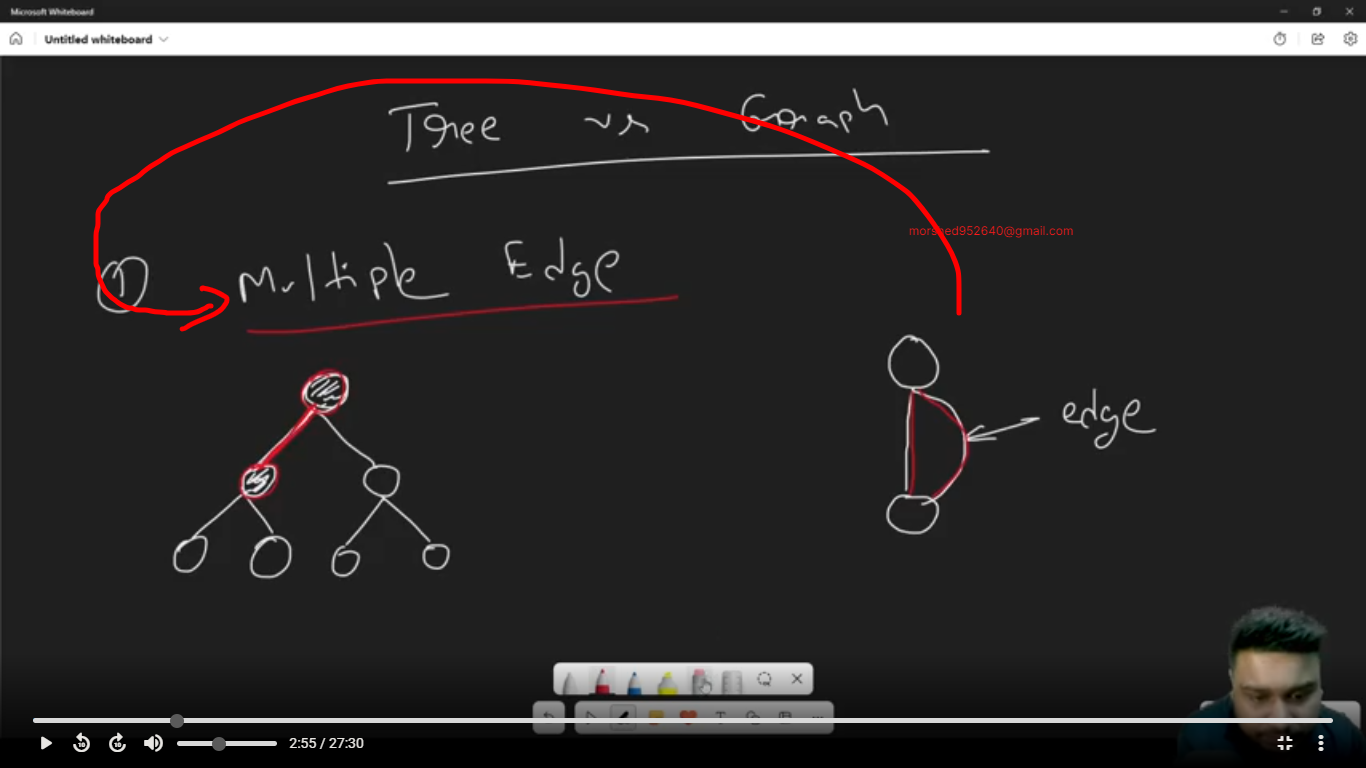 Microsoft Whiteboard
Untitled whiteboard
Tree vs Graph
morshed952640@gmail.com
① Multiple Edge
edge
2:55 / 27:30